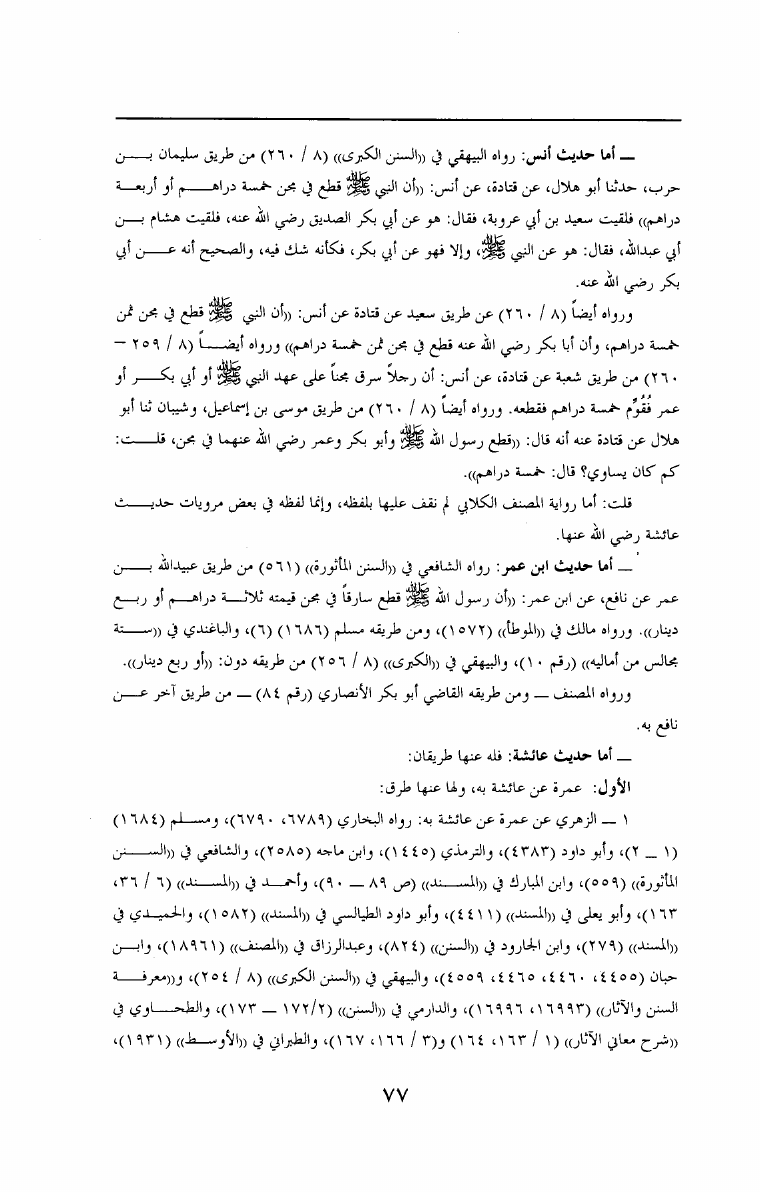 ـ أما حديث أنس: رواه البيهقي في ((السنن الكبرى)) (٨ / ٢٦٠) من طريق سليمان بـن
حرب، حدثنا أبو هلال، عن قتادة، عن أنس: ((أن النبي ﷺ قطع في مجن خمسة دراهـم أو أربعـة
دراهم)) فلقيت سعيد بن أبي عروبة، فقال: هو عن أبي بكر الصديق رضي الله عنه، فلقيت هشام بـن
أبي عبدالله، فقال: هو عن النبي ﷺ، وإلا فهو عن أبي بكر، فكأنه شك فيه، والصحيح أنه عـن أبي
بكر رضي الله عنه.
ورواه أيضاً (٨ / ٢٦٠) عن طريق سعيد عن قتادة عن أنس: ((أن النبي ﷺ قطع في مجن ثمن
خمسة دراهم، وأن أبا بكر رضي الله عنه قطع في مجن ثمن خمسة دراهم)) ورواه أيضـاً (٨ / ٢٥٩ –
٢٦٠) من طريق شعبة عن قتادة، عن أنس: أن رجلاً سرق مجناً على عهد النبي ﷺ أو أبي بكـر أو
عمر فُقُوِّم خمسة دراهم فقطعه. ورواه أيضاً (٨ / ٢٦٠) من طريق موسى بن إسماعيل، وشيبان ثنا أبو
هلال عن قتادة عنه أنه قال: ((قطع رسول الله ﷺ وأبو بكر وعمر رضي الله عنهما في مجن، قلـت:
كم كان يساوي؟ قال: خمسة دراهم)).
قلت: أما رواية المصنف الكلابي لم نقف عليها بلفظه، وإنما لفظه في بعض مرويات حديـث
عائشة رضي الله عنها.
ـ أما حديث ابن عمر: رواه الشافعي في ((السنن المأثورة)) (٥٦١) من طريق عبيدالله بـن
عمر عن نافع، عن ابن عمر: ((أن رسول الله ﷺ قطع سارقاً في مجن قيمته ثلاثـة دراهـم أو ربـع
دينار)). ورواه مالك في ((الموطأ)) (١٥٧٢)، ومن طريقه مسلم (١٦٨٦) (٦)، والباغندي في ((سـتة
مجالس من أماليه)) (رقم ١٠)، والبيهقي في ((الكبرى)) (٨ / ٢٥٦) من طريقه دون: ((أو ربع دينار)).
ورواه المصنف ـ ومن طريقه القاضي أبو بكر الأنصاري (رقم ٨٤) ـ من طريق آخر عـن
نافع به.
ـ أما حديث عائشة: فله عنها طريقان:
الأول: عمرة عن عائشة به، ولها عنها طرق:
١ ـ الزهري عن عمرة عن عائشة به: رواه البخاري (٦٧٨٩، ٦٧٩٠)، ومسـلم (١٦٨٤)
(١ – ٢)، وأبو داود (٤٣٨٣)، والترمذي (١٤٤٥)، وابن ماجه (٢٥٨٥)، والشافعي في ((السـنن
المأثورة)) (٥٥٩)، وابن المبارك في ((المسـند)) (ص ٨٩ – ٩٠)، وأحمـد في ((المسـند)) (٦ / ٣٦،
١٦٣)، وأبو يعلى في ((المسند)) (٤٤١١)، وأبو داود الطيالسي في ((المسند)) (١٥٨٢)، والحميـدي في
((المسند)) (٢٧٩)، وابن الجارود في ((السنن)) (٨٢٤)، وعبدالرزاق في ((المصنف)) (١٨٩٦١)، وابـن
حبان (٤٤٥٥، ٤٤٦٠، ٤٤٦٥، ٤٥٥٩)، والبيهقي في ((السنن الكبرى)) (٨ / ٢٥٤)، و((معرفـة
السنن والآثار)) (١٦٩٩٣، ١٦٩٩٦)، والدارمي في ((السنن)) (١٧٢/٢ – ١٧٣)، والطحـاوي في
((شرح معاني الآثار)) (١ / ١٦٣، ١٦٤) و(٣ / ١٦٦، ١٦٧)، والطبراني في ((الأوسـط)) (١٩٣١)،
٧٧